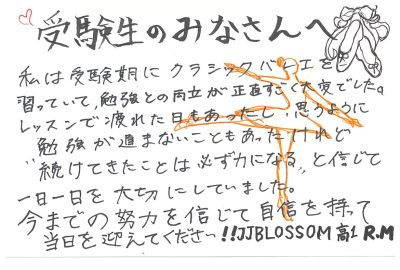 受験生のみなさんへ
私は受験期にクラシックバレエを
習っていて、勉強との両立が正直すごく大変でした。
レッスンで疲れた日もあったし、思うように
勉強が進まないこともあったけれど
"続けてきたことは必ず力になる"と信じて
一日一日を大切にしていました。
今までの努力を信じて自信を持って
当日を迎えてください!!JJBLOSSOM 高1 R.M